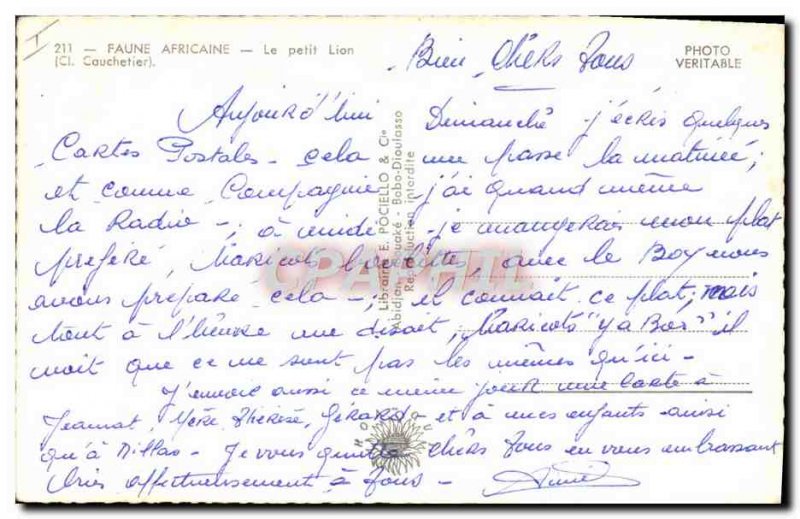 211 — FAUNE AFRICAINE — Le petit Lion
(Cl. Cauchetier).
PHOTO
VERITABLE
Bien chers Tous
Aujourd'hui Dimanche j'écris quelques
Cartes Postales - cela me passe la matinée;
et comme Compagnie j'ai quand même
la Radio -; à midi je mangerais mon plat
préféré, Haricots, avec le Boy nous
avons préparé cela -; il connait ce plat; mais
tout à l'heure me disait, Haricots "Y a Bon" il
voit que ce ne sont pas les mêmes qu'ici -
J'envoie aussi ce même jour une Carte à
Jeannot, Mère, Thérèse, Gérard et à mes enfants ainsi
qu'à Millau - Je vous quitte chers Tous en vous embrassant
très affectueusement à Tous -
Librairie E. POCIELLO & Cie
Abidjan - Bouaké - Bobo-Dioulasso
Reproduction interdite
CPAPHIL